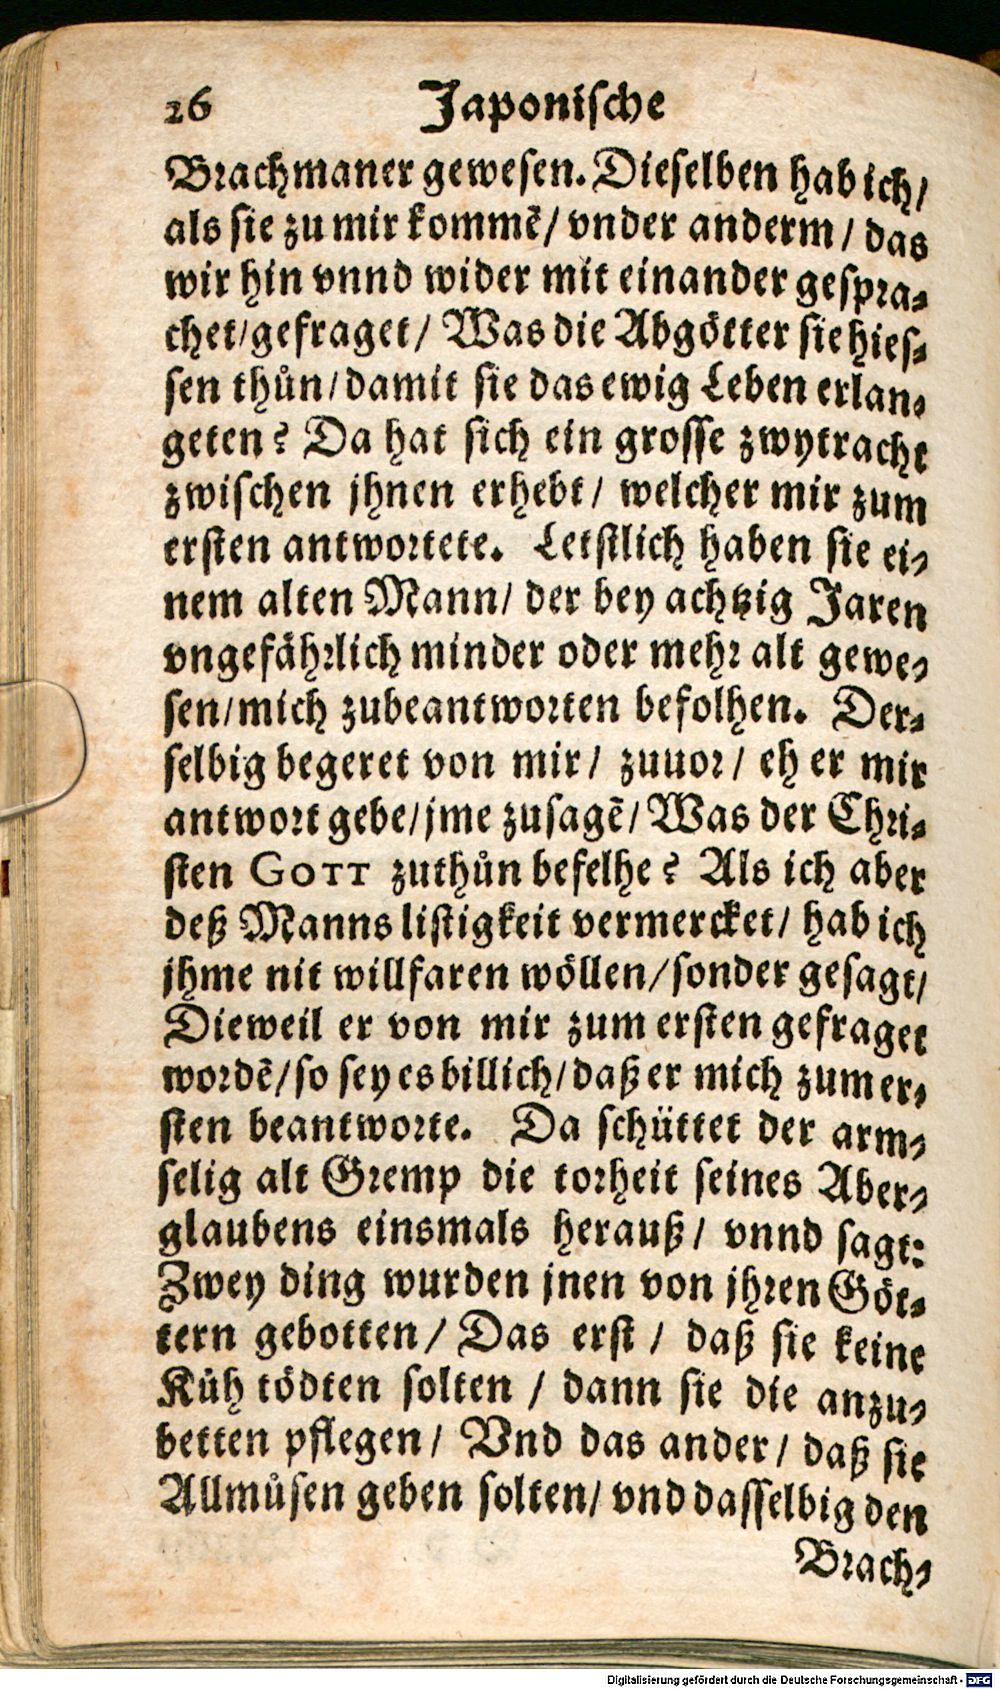 26 Japonische
Brachmaner gewesen. Dieselben hab ich/
als sie zu mir kommẽ/ vnder anderm/ das
wir hin vnnd wider mit einander gespra-
chet/gefraget/ Was die Abgötter sie hies-
sen thůn/damit sie das ewig Leben erlan-
geten? Da hat sich ein grosse zwytracht
zwischen jhnen erhebt/ welcher mir zum
ersten antwortete. Letstlich haben sie ei-
nem alten Mann/ der bey achtzig Jaren
vngefährlich minder oder mehr alt gewe-
sen/mich zubeantworten befolhen. Der-
selbig begeret von mir/ zuuor/ eh er mir
antwort gebe/jme zusagẽ/ Was der Chri-
sten GOTT zuthůn befelhe? Als ich aber
deß Manns listigkeit vermercket/ hab ich
jhme nit willfaren wöllen/sonder gesagt/
Dieweil er von mir zum ersten gefraget
wordẽ/so sey es billich/daß er mich zum er-
sten beantworte. Da schüttet der arm-
selig alt Gremp die torheit seines Aber-
glaubens einsmals herauß/ vnnd sagt:
Zwey ding wurden jnen von jhren Göt-
tern gebotten/ Das erst/ daß sie keine
Kůh tödten solten/ dann sie die anzu-
betten pflegen/ Vnd das ander/ daß sie
Allmůsen geben solten/ vnd dasselbig den
Brach-
Digitalisierung gefördert durch die Deutsche Forschungsgemeinschaft - DFG